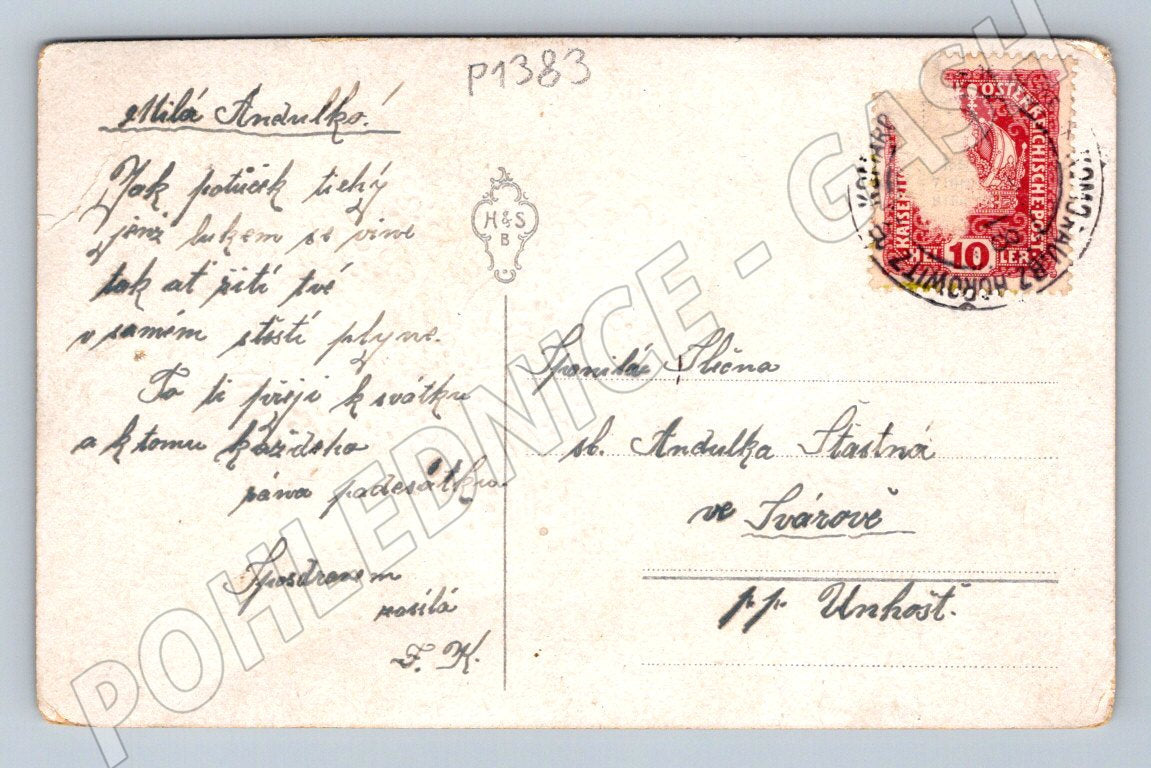 P1383
Milá Andulko!
Jak potůček tichý
jenž lukem se vine
tak ať žití tvé
v samém stěstí plyne.
To ti přeji k svátku
a k tomu každého
pána padesátku.
Spozdravem
zasílá
F. K.
H&S
B
KAISERLICHE ÖSTERREICHISCHE POST
10
HELLER
HOROWITZ
Spanilá Slečna
sl. Andulka Šťastná
ve Svárově
p.p. Unhošť.
POHLEDNICE - GASH